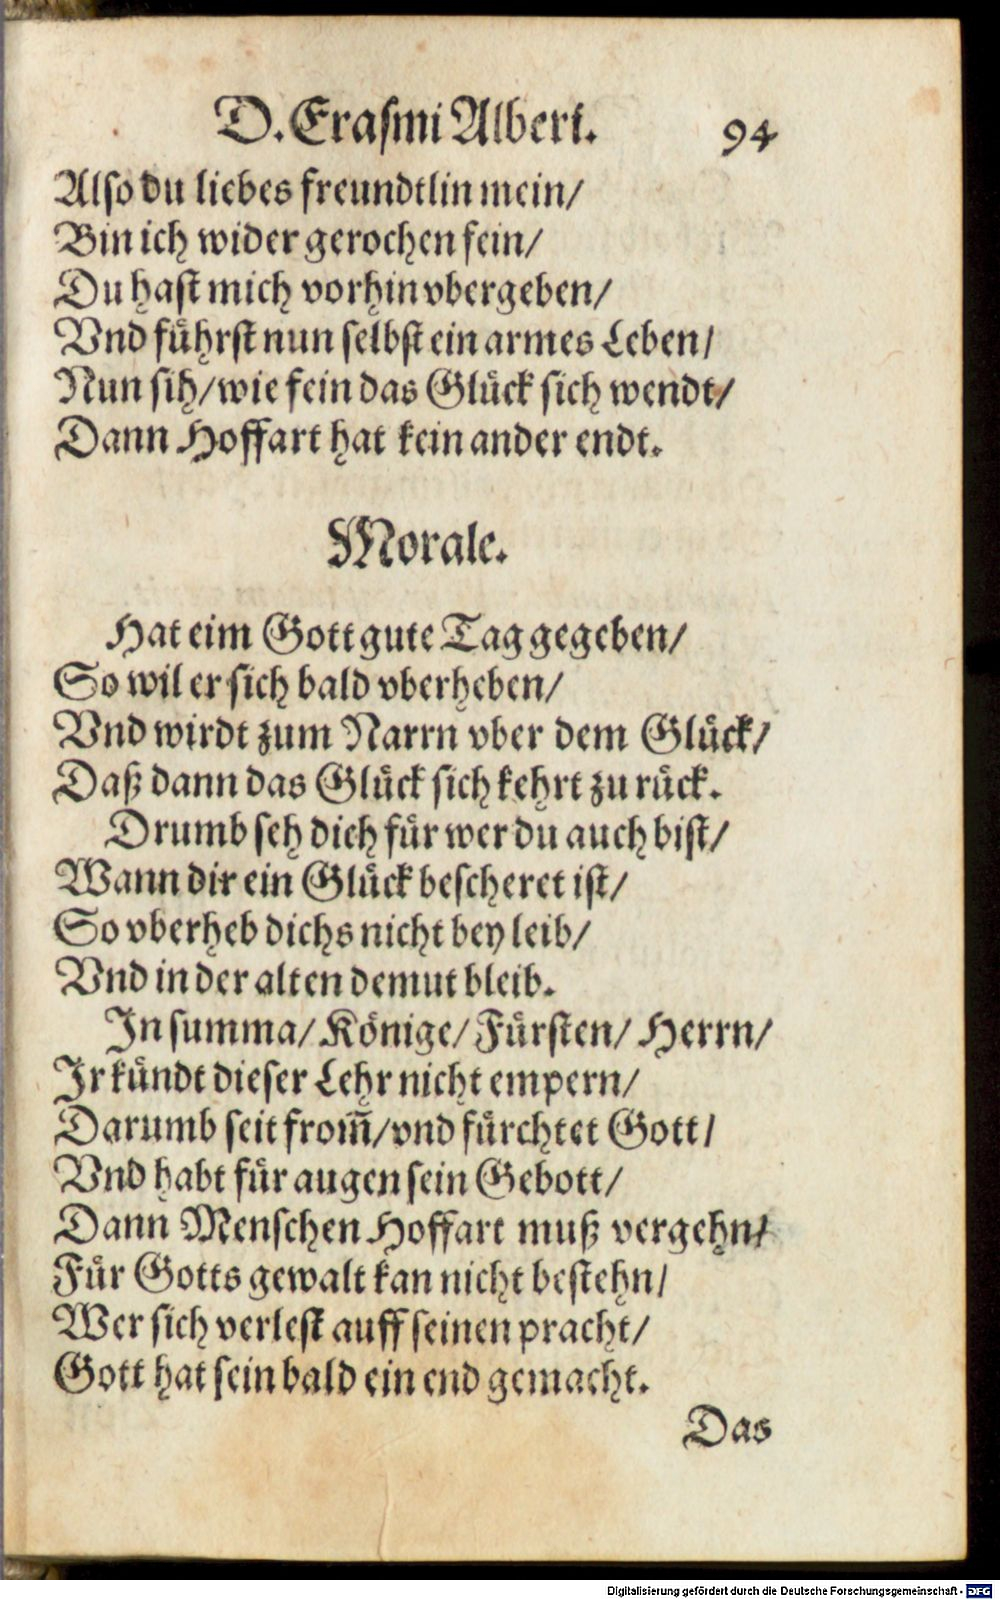 D. Erasmi Alberi. 94
Also du liebes freundtlin mein/
Bin ich wider gerochen fein/
Du hast mich vorhin vbergeben/
Vnd führst nun selbst ein armes Leben/
Nun sih/wie fein das Glück sich wendt/
Dann Hoffart hat kein ander endt.
Morale.
Hat eim Gott gute Tag gegeben/
So wil er sich bald vberheben/
Vnd wirdt zum Narrn vber dem Glück/
Daß dann das Glück sich kehrt zu rück.
Drumb seh dich für wer du auch bist/
Wann dir ein Glück bescheret ist/
So vberheb dichs nicht bey leib/
Vnd in der alten demut bleib.
In summa/ Könige/ Fürsten/ Herrn/
Ir kündt dieser Lehr nicht empern/
Darumb seit from̃/vnd fürchtet Gott/
Vnd habt für augen sein Gebott/
Dann Menschen Hoffart muß vergehn/
Für Gotts gewalt kan nicht bestehn/
Wer sich verlest auff seinen pracht/
Gott hat sein bald ein end gemacht.
Das
Digitalisierung gefördert durch die Deutsche Forschungsgemeinschaft - DFG